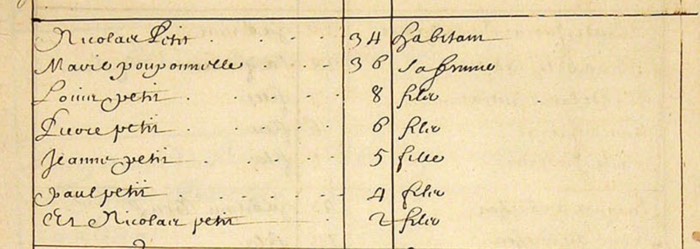 Nicolas Petit 34 habitant
Marie pouponnelle 36 sa femme
Louis petit 8 filz
Pierre petit 6 filz
Jeanne petit 5 fille
paul petit 4 filz
Et Nicolas petit 2 filz